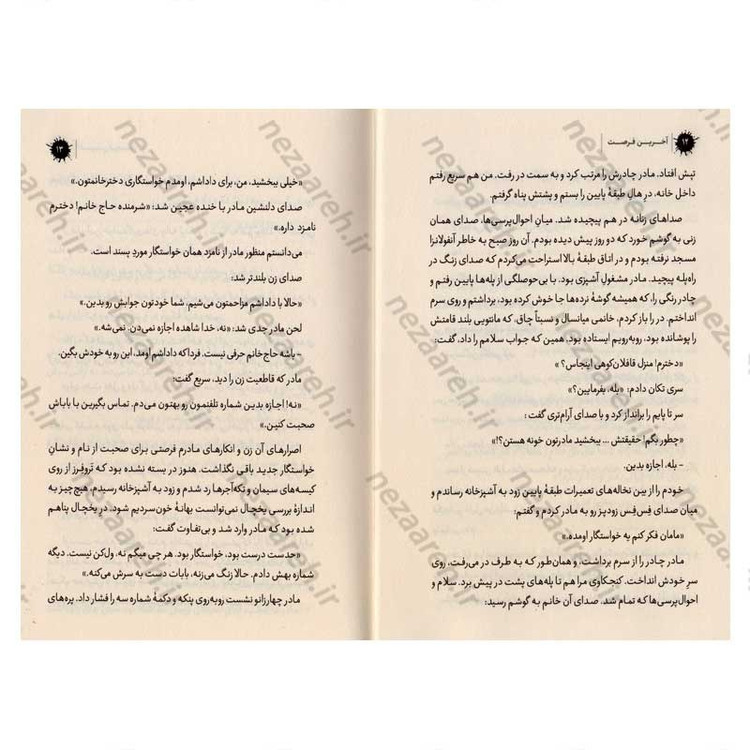 ۱۲ | آخرین فرصت
تپش افتاد. مادر چادرش را مرتب کرد و به سمت در رفت. من هم سریع رفتم
داخل خانه، در هالِ طبقهٔ پایین را بستم و پشتش پناه گرفتم.
صداهای زنانه در هم پیچیده شد. میانِ احوال‌پرسی‌ها، صدای همان
زنی به گوشم خورد که دو روز پیش دیده بودم. آن روز صبح به خاطر آنفولانزا
مسجد نرفته بودم و در اتاق طبقهٔ بالا استراحت می‌کردم که صدای زنگ در
راه‌پله پیچید. مادر مشغول آشپزی بود. با بی‌حوصلگی از پله‌ها پایین رفتم و
چادر رنگی را، که همیشه گوشهٔ نرده‌ها جا خوش کرده بود، برداشتم و روی سرم
انداختم. در را باز کردم، خانمی میانسال و نسبتاً چاق، که مانتویی بلند قامتش
را پوشانده بود، روبه‌رویم ایستاده بود. همین که جواب سلامم را داد، گفت:
«دخترم! منزل قافلان‌کوهی اینجاس؟»
سری تکان دادم: «بله، بفرمایین؟»
سر تا پایم را برانداز کرد و با صدای آرام‌تری گفت :
«چطور بگم! حقیقتش ... ببخشید مادرتون خونه هستن؟!»
- بله. اجازه بدین.
خودم را از بین نخاله‌های تعمیرات طبقهٔ پایین زود به آشپزخانه رساندم و
میان صدای فِس‌فِس زودپز رو به مادر کردم و گفتم:
«مامان فکر کنم یه خواستگار اومده.»
مادر چادر را از سرم برداشت. و همان‌طور که به طرف در می‌رفت، روی
سرِ خودش انداخت. کنجکاوی مرا هم تا پله‌های پشت در پیش برد. سلام و
احوال‌پرسی‌ها که تمام شد. صدای آن خانم به گوشم رسید:
| ۱۳
«خیلی ببخشید، من، برای داداشم، اومدم خواستگاری دخترخانمتون.»
صدای دلنشین مادر با خنده عجین شد: «شرمنده حاج خانم! دخترم
نامزد داره.»
می‌دانستم منظور مادر از نامزد همان خواستگار موردِ پسند است.
صدای زن بلندتر شد:
«حالا با داداشم مزاحمتون می‌شیم. شما خودتون جوابش رو بدین.»
لحن مادر جدی شد: «نه، خدا شاهده اجازه نمی‌دن. نمی‌شه.»
- باشه حاج‌خانم حرفی نیست. فردا که داداشم اومد، این رو به خودش بگین.
مادر که قاطعیت زن را دید، سریع گفت:
«نه! اجازه بدین شماره تلفنمون رو بهتون می‌دم. تماس بگیرین با باباش
صحبت کنین.»
اصرارهای آن زن و انکارهای مادرم فرصتی برای صحبت از نام و نشانِ
خواستگار جدید باقی نگذاشت. هنوز در بسته نشده بود که تَروفِرز از روی
کیسه‌های سیمان و تکه‌آجرها رد شدم و زود به آشپزخانه رسیدم. هیچ‌چیز به
اندازهٔ بررسی یخچال نمی‌توانست بهانهٔ خون‌سردیم شود. در یخچال پناهم
شده بود که مادر وارد شد و بی‌تفاوت گفت:
«حدست درست بود، خواستگار بود. هر چی میگم نه، ول‌کن نیست. دیگه
شماره بهش دادم. حالا زنگ می‌زنه، بابات دست به سرش می‌کنه.»
مادر چهارزانو نشست روبه‌روی پنکه و دکمهٔ شماره سه را فشار داد. پره‌های
nezaareh.ir